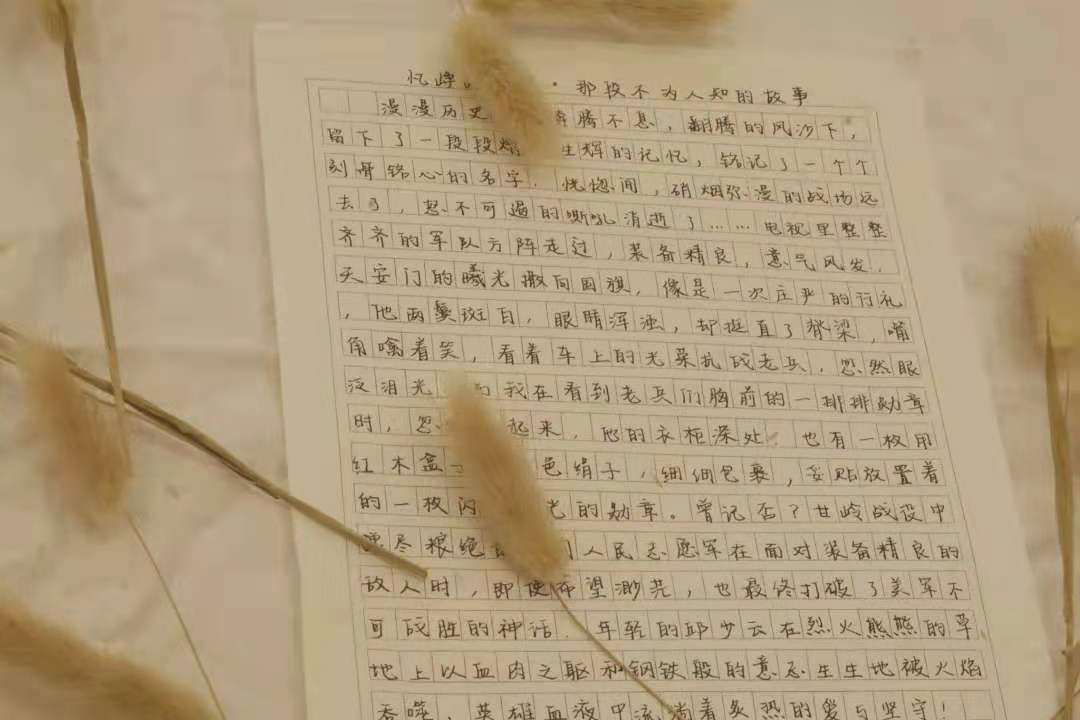 忆峥 · 那段不为人知的故事
漫漫历史 奔腾不息,翻腾的风沙下,
留下了一段段 生辉的记忆,铭记了一个个
刻骨铭心的名字.恍惚间,硝烟弥漫的战场远
去了,怒不可遏的嘶吼消逝了……电视里整整
齐齐的军队方阵走过,装备精良,意气风发.
天安门的曦光撒向国旗,像是一次庄严的行礼
,他两鬓斑白,眼睛浑浊,却挺直了脊梁,嘴
角噙着笑,看着车上的光荣抗战老兵,忽然眼
泛泪光 我在看到老兵们胸前的一排排勋章
时,忽 起来,他的衣柜深处,也有一枚用
红木盒 色绢子,细细包裹,妥贴放置着
的一枚闪 光的勋章。曾记否?甘岭战役中
尽粮绝 人民志愿军在面对装备精良的
敌人时,即使希望渺茫,也最终打破了美军不
可战胜的神话.年轻的邱少云在烈火熊熊的草
地上以血肉之躯和钢铁般的意志生生地被火焰
吞噬,英雄血液中流淌着炙热的爱与坚守!